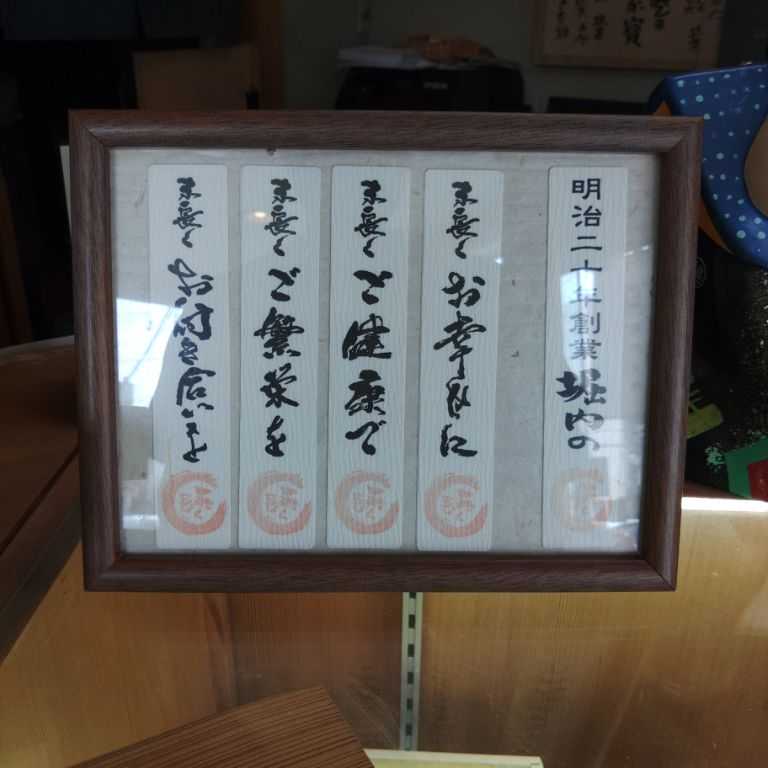 明治二十年創業堀内の
末長くお幸せに
末長くご健康で
末長くご繁栄を
末長くお付き合いを